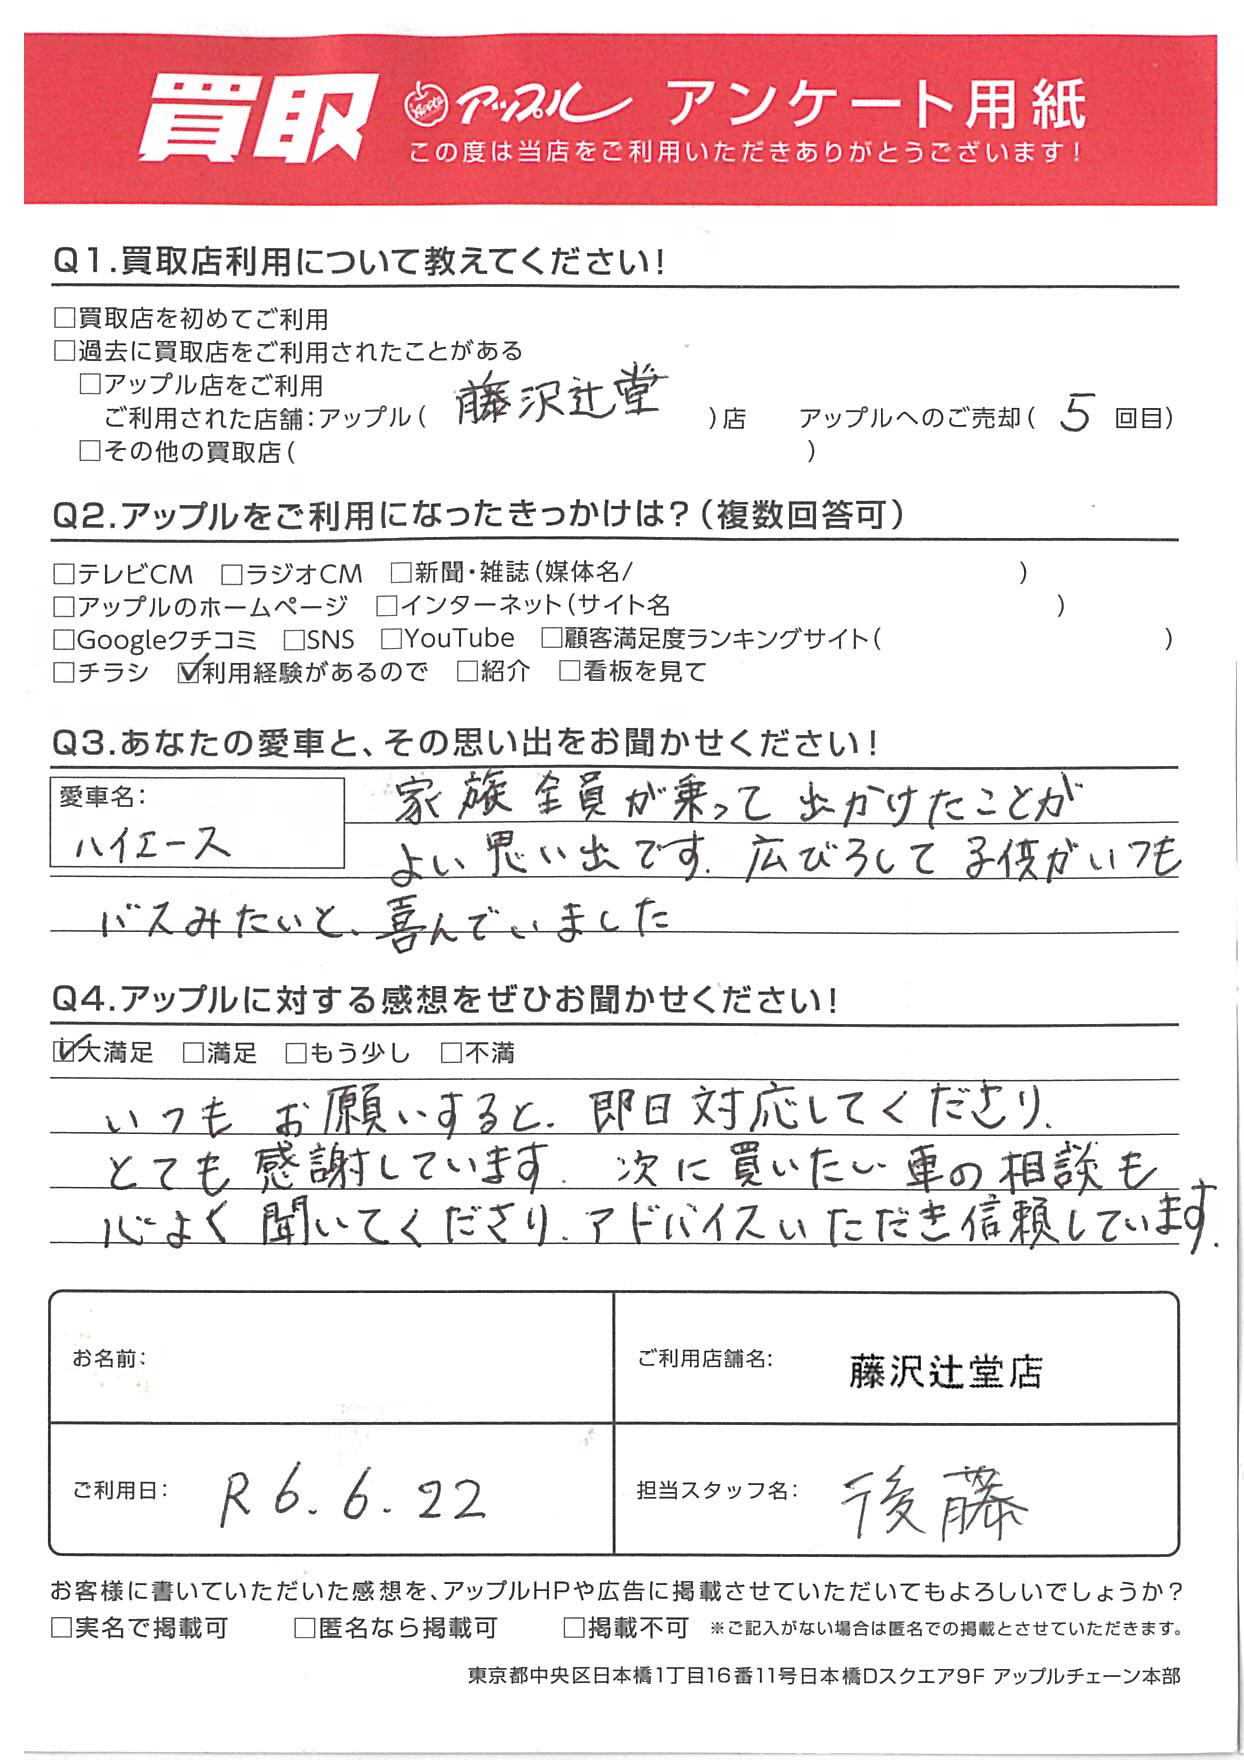 買取 アップル アンケート用紙
この度は当店をご利用いただきありがとうございます!
Q1.買取店利用について教えてください!
□買取店を初めてご利用
□過去に買取店をご利用されたことがある
□アップル店をご利用
ご利用された店舗:アップル( 藤沢辻堂 )店 アップルへのご売却( 5 回目)
□その他の買取店( )
Q2.アップルをご利用になったきっかけは?(複数回答可)
□テレビCM □ラジオCM □新聞・雑誌(媒体名/ )
□アップルのホームページ □インターネット(サイト名 )
□Googleクチコミ □SNS □YouTube □顧客満足度ランキングサイト( )
□チラシ ☑利用経験があるので □紹介 □看板を見て
Q3.あなたの愛車と、その思い出をお聞かせください!
愛車名:
ハイエース
家族全員が乗って出かけたことが
よい思い出です。広びろして子供がいつも
バスみたいと、喜んでいました
Q4.アップルに対する感想をぜひお聞かせください!
☑大満足 □満足 □もう少し □不満
いつもお願いすると、即日対応してくださり、
とても感謝しています。次に買いたい車の相談も
心よく聞いてくださり、アドバイスいただき信頼しています。
お名前:
ご利用店舗名: 藤沢辻堂店
ご利用日: R6.6.22
担当スタッフ名: 後藤
お客様に書いていただいた感想を、アップルHPや広告に掲載させていただいてもよろしいでしょうか?
□実名で掲載可 □匿名なら掲載可 □掲載不可 ※ご記入がない場合は匿名での掲載とさせていただきます。
東京都中央区日本橋1丁目16番11号日本橋Dスクエア9F アップルチェーン本部